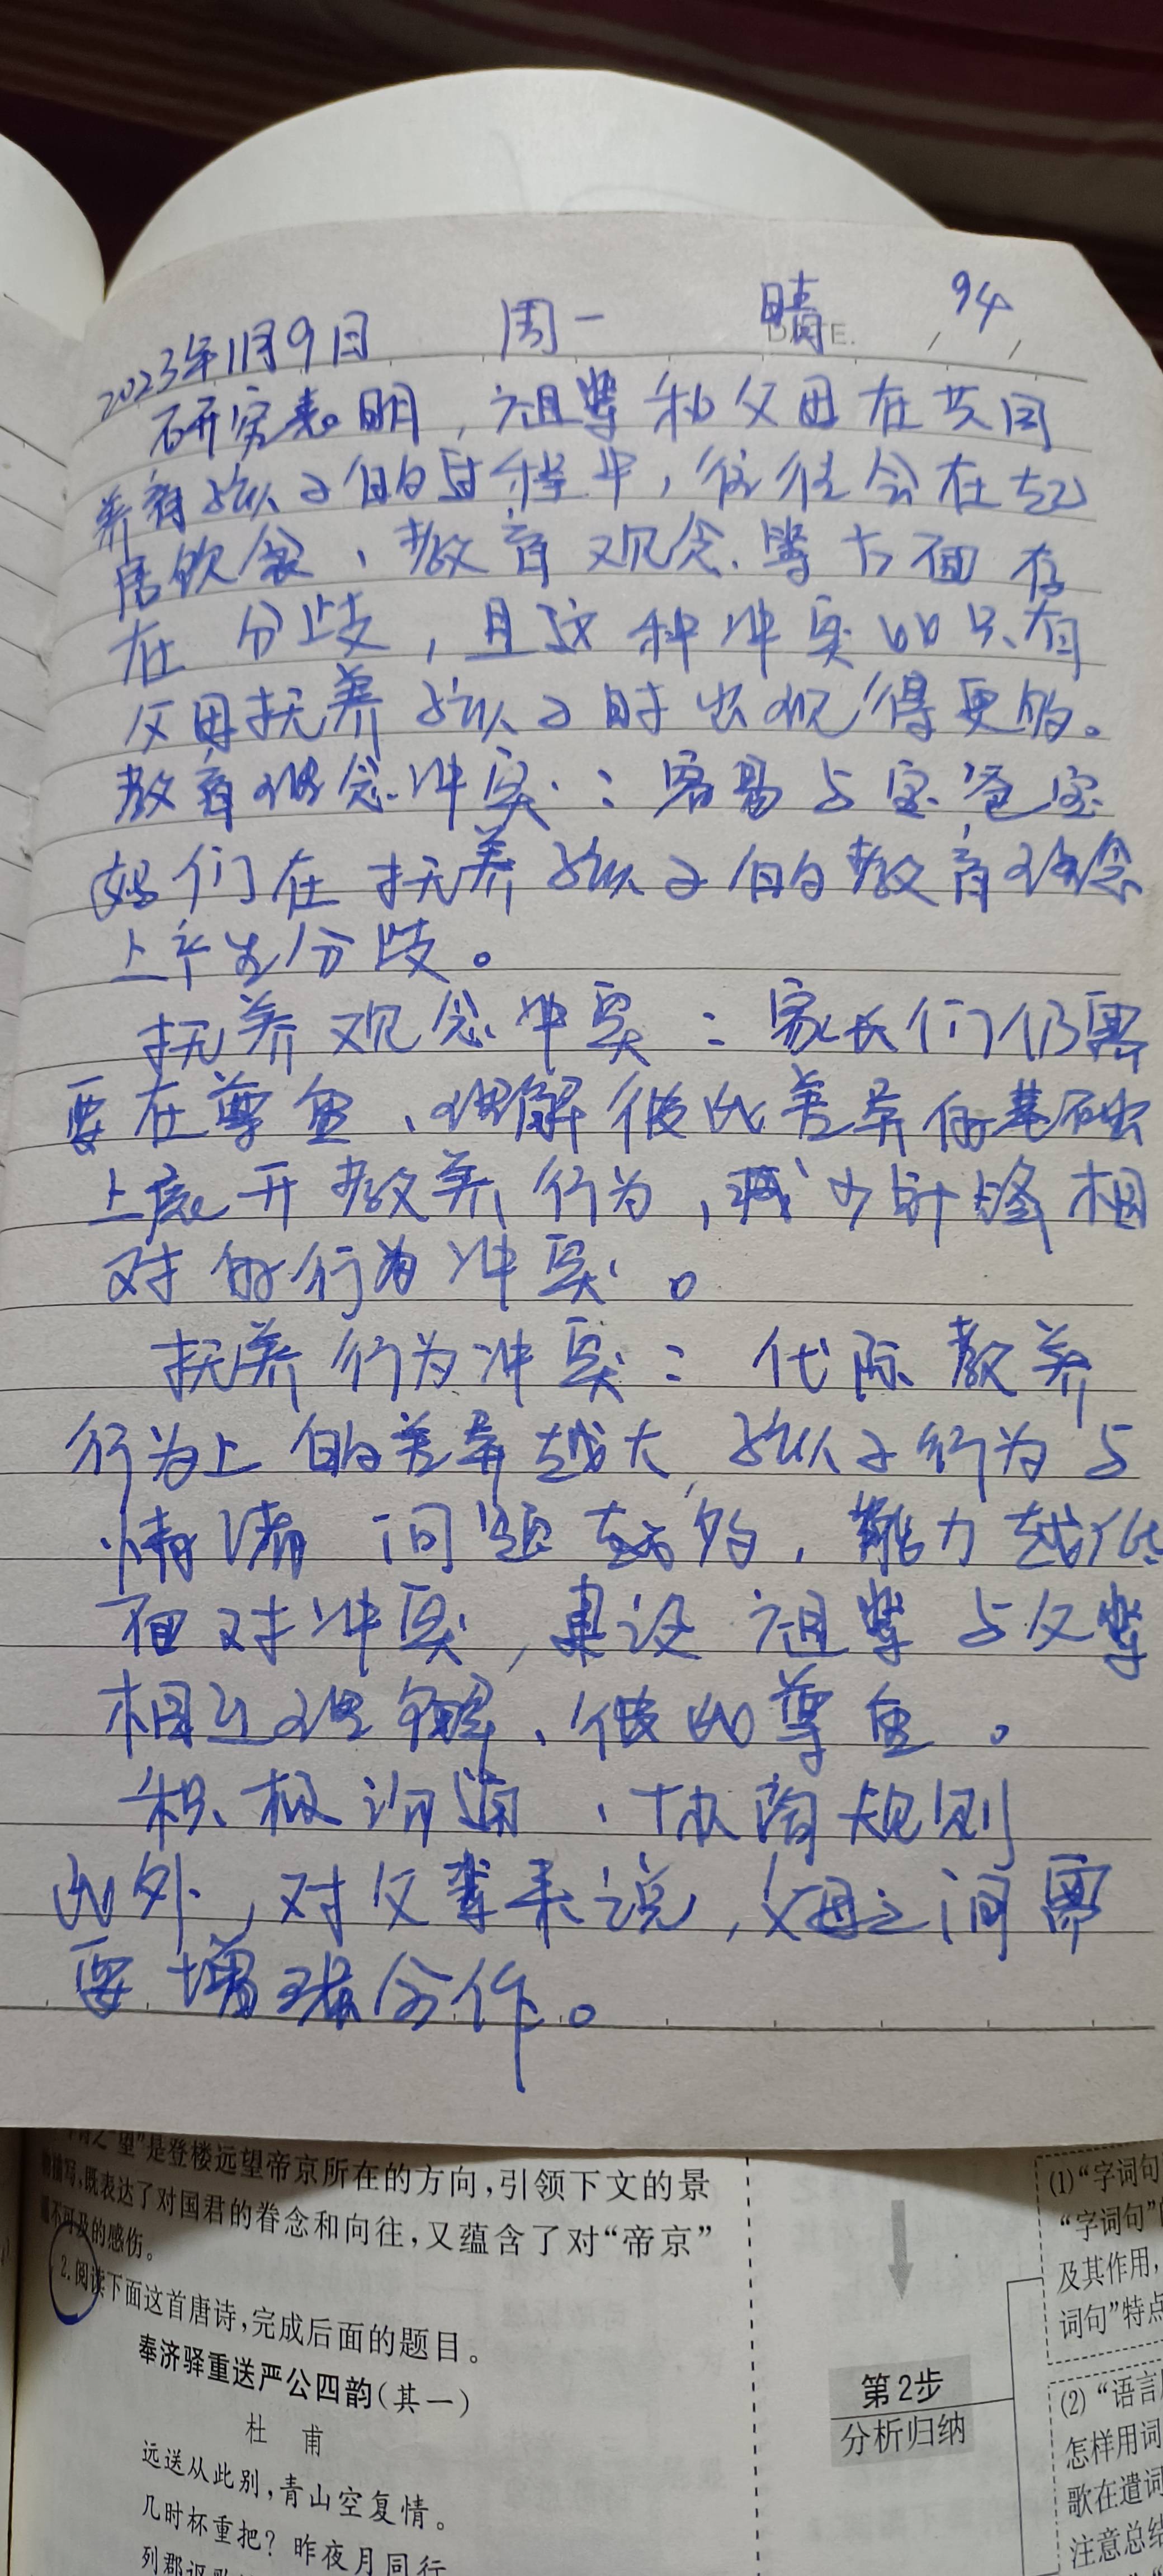 2023年11月9日 周一 晴 94
DATE.
研究表明,祖辈和父母在共同
养育孩子的过程中,往往会在起
居饮食、教育观念等方面存
在分歧,且这种冲突比只有
父母抚养孩子时出现得更多。
教育理念冲突:容易与宝爸宝
妈们在抚养孩子的教育理念
上产生分歧。
抚养观念冲突:家长们仍需
要在尊重、理解彼此差异的基础
上展开教养行为,减少针锋相
对的行为冲突。
抚养行为冲突:代际教养
行为上的差异越大,孩子行为与
情绪问题越多,能力越低
面对冲突,建议祖辈与父辈
相互理解、彼此尊重。
积极沟通、协商规则
此外,对父辈来说,父母之间需
要增强合作。
之“望”是登楼远望帝京所在的方向,引领下文的景
物描写,既表达了对国君的眷念和向往,又蕴含了对“帝京”
不可及的感伤。
2.阅读下面这首唐诗,完成后面的题目。
奉济驿重送严公四韵(其一)
杜甫
远送从此别,青山空复情。
几时杯重把?昨夜月同行
列郡讴歌
第2步
分析归纳
(1)“字词句
“字词句”
及其作用,
词句”特点
(2)“语言
怎样用词
歌在遣词
注意总结